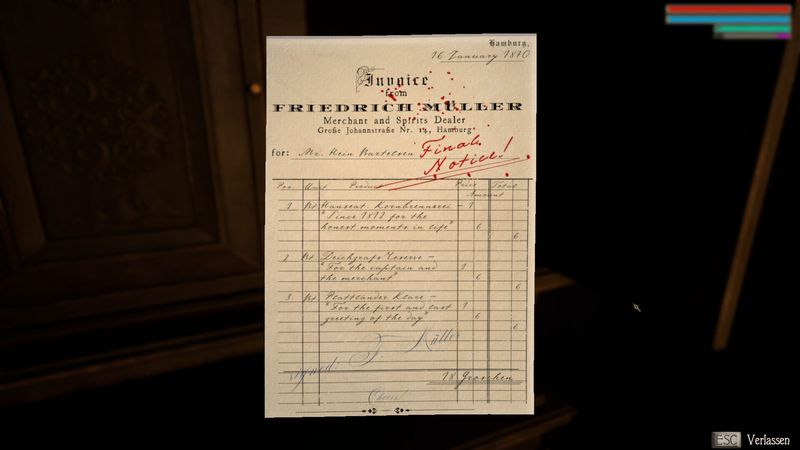 Hamburg,
16 January 1870
Invoice
from
FRIEDRICH MÜLLER
Merchant and Spirits Dealer
Große Johannstraße Nr. 14, Hamburg
for: Mr. Hein Bartelsen
Final
Notice!
Pos. Unit Product Price Total
Amount
1 Bt. Hanseat. Kornbrennerei - 1
"Since 1812 for the
honest moments in life" 6
6
2 Bt. Deichgrafs Reserve -
"For the captain and 1
the merchant" 6
6
3 Bt. Plattländer Klare -
"For the first and last 1
greeting of the day" 6
6
signed: F. Müller
18 Groschen
Cheers!
ESC Verlassen